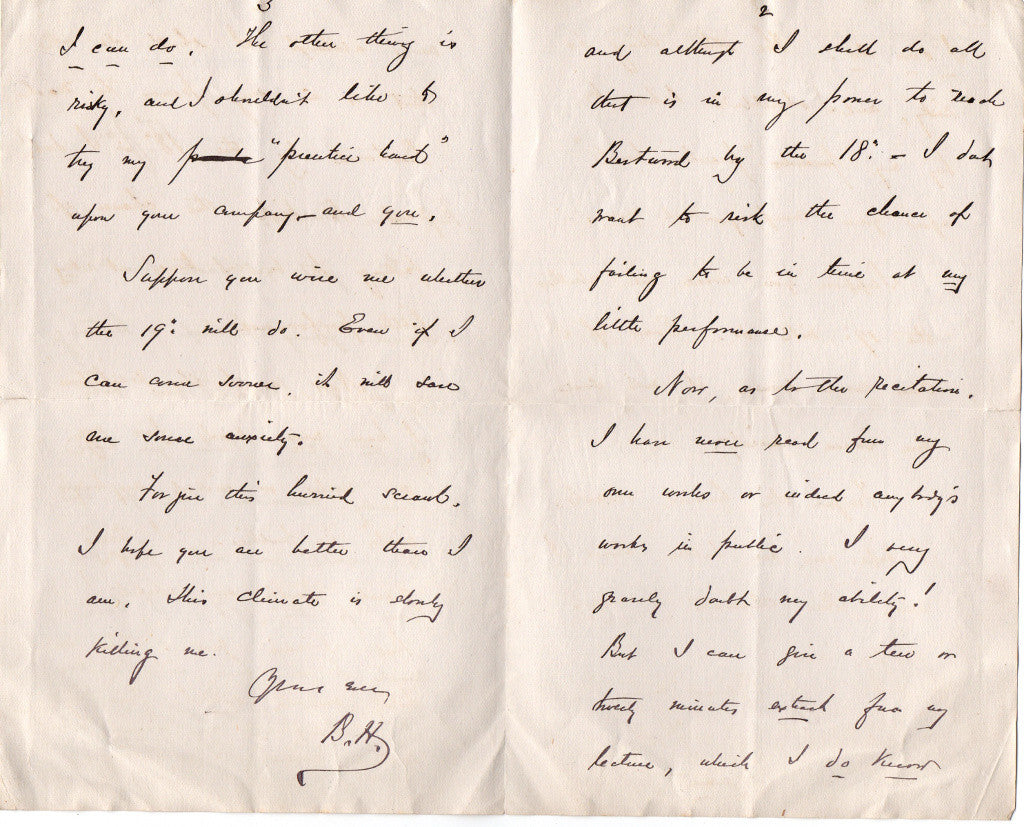 2
and although I shall do all
that is in my power to reach
Bestwood by the 18th. – I don't
want to risk the chance of
failing to be in time at my
little performance.
Now, as to the recitation.
I have never read from my
own works or indeed anybody's
works in public. I very
gravely doubt my ability!
But I can give a ten or
twenty minutes extract from my
lecture, which I do know
3
I can do. The other thing is
risky, and I shouldn't like to
try my "prentice hand"
upon your company – and you.
Suppose you wire me whether
the 19th will do. Even if I
can come sooner, it will save
me some anxiety.
Forgive this hurried scrawl.
I hope you are better than I
am. This climate is slowly
killing me.
Yours ever,
B.H.